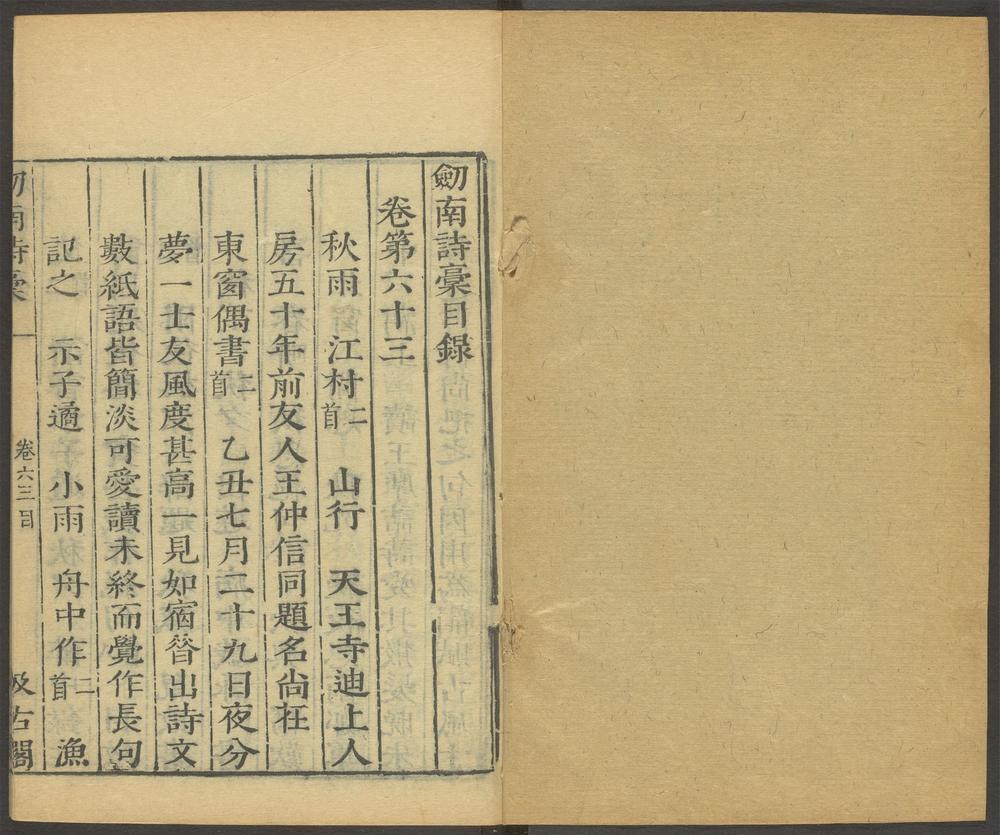 劒南詩稾目録
卷第六十三
秋雨　江村二首　山行　天王寺迪上人
房五十年前友人王仲信同題名尙在
東窗偶書二首　乙丑七月二十九日夜分
夢一士友風度甚高一見如宿昔出詩文
數紙語皆簡淡可愛讀未終而覺作長句
記之　示子遹　小雨　舟中作二首　漁
劒南詩稾　一　卷六三目　汲古閣